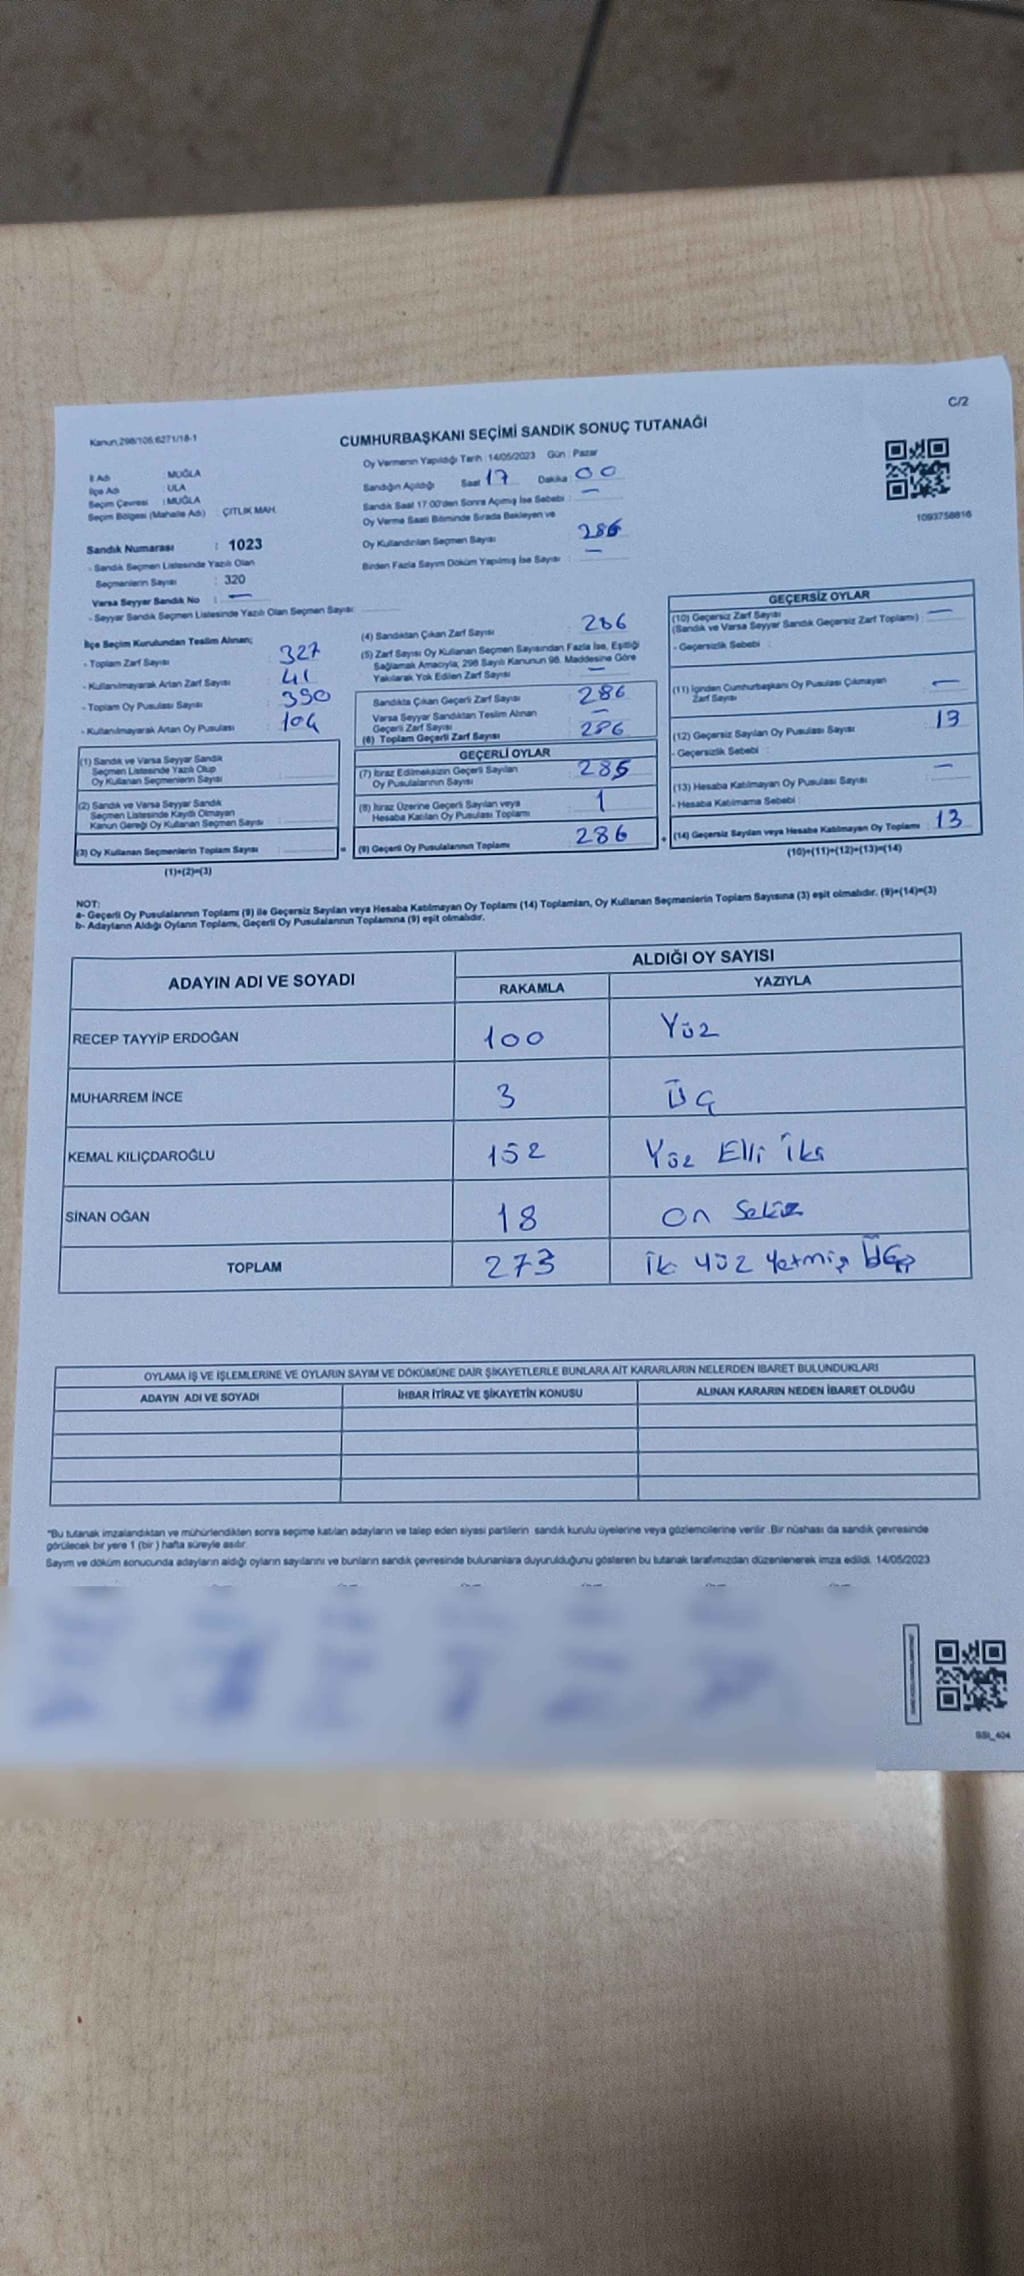 C/2
Kanun,298/105,6271/18-1
CUMHURBAŞKANI SEÇİMİ SANDIK SONUÇ TUTANAĞI
İl Adı : MUĞLA
İlçe Adı : ULA
Seçim Çevresi : MUĞLA
Seçim Bölgesi (Mahalle Adı) ÇITLIK MAH.
Sandık Numarası : 1023
- Sandık Seçmen Listesinde Yazılı Olan
Seçmenlerin Sayısı : 320
Varsa Seyyar Sandık No : —
- Seyyar Sandık Seçmen Listesinde Yazılı Olan Seçmen Sayısı:
Oy Vermenin Yapıldığı Tarih : 14/05/2023 Gün : Pazar
Sandığın Açıldığı Saat : 17 Dakika : 00
Sandık Saat 17:00'den Sonra Açılmış İse Sebebi : —
Oy Verme Saati Bitiminde Sırada Bekleyen ve
Oy Kullandırılan Seçmen Sayısı 286
Birden Fazla Sayım Döküm Yapılmış İse Sayısı : —
1093758816
İlçe Seçim Kurulundan Teslim Alınan;
- Toplam Zarf Sayısı : 327
- Kullanılmayarak Artan Zarf Sayısı : 41
- Toplam Oy Pusulası Sayısı : 390
- Kullanılmayarak Artan Oy Pusulası : 104
(1) Sandık ve Varsa Seyyar Sandık
Seçmen Listesinde Yazılı Olup
Oy Kullanan Seçmenlerin Sayısı :
(2) Sandık ve Varsa Seyyar Sandık
Seçmen Listesinde Kayıtlı Olmayan
Kanun Gereği Oy Kullanan Seçmen Sayısı :
(3) Oy Kullanan Seçmenlerin Toplam Sayısı :
(1)+(2)=(3)
(4) Sandıktan Çıkan Zarf Sayısı : 286
(5) Zarf Sayısı Oy Kullanan Seçmen Sayısından Fazla İse, Eşitliği
Sağlamak Amacıyla; 298 Sayılı Kanunun 98. Maddesine Göre
Yakılarak Yok Edilen Zarf Sayısı : —
Sandıkta Çıkan Geçerli Zarf Sayısı : 286
Varsa Seyyar Sandıktan Teslim Alınan
Geçerli Zarf Sayısı : —
(6) Toplam Geçerli Zarf Sayısı : 286
GEÇERLİ OYLAR
(7) İtiraz Edilmeksizin Geçerli Sayılan
Oy Pusulalarının Sayısı : 285
(8) İtiraz Üzerine Geçerli Sayılan veya
Hesaba Katılan Oy Pusulası Toplamı : 1
(9) Geçerli Oy Pusulalarının Toplamı : 286
GEÇERSİZ OYLAR
(10) Geçersiz Zarf Sayısı
(Sandık ve Varsa Seyyar Sandık Geçersiz Zarf Toplamı) : —
- Geçersizlik Sebebi :
(11) İçinden Cumhurbaşkanı Oy Pusulası Çıkmayan
Zarf Sayısı : —
(12) Geçersiz Sayılan Oy Pusulası Sayısı : 13
- Geçersizlik Sebebi :
(13) Hesaba Katılmayan Oy Pusulası Sayısı : —
- Hesaba Katılmama Sebebi :
(14) Geçersiz Sayılan veya Hesaba Katılmayan Oy Toplamı : 13
(10)+(11)+(12)+(13)=(14)
NOT:
a- Geçerli Oy Pusulalarının Toplamı (9) ile Geçersiz Sayılan veya Hesaba Katılmayan Oy Toplamı (14) Toplamları, Oy Kullanan Seçmenlerin Toplam Sayısına (3) eşit olmalıdır. (9)+(14)=(3)
b- Adayların Aldığı Oyların Toplamı, Geçerli Oy Pusulalarının Toplamına (9) eşit olmalıdır.
ADAYIN ADI VE SOYADI ALDIĞI OY SAYISI
RAKAMLA YAZIYLA
RECEP TAYYİP ERDOĞAN 100 Yüz
MUHARREM İNCE 3 Üç
KEMAL KILIÇDAROĞLU 152 Yüz Elli İki
SİNAN OĞAN 18 On Sekiz
TOPLAM 273 İki Yüz Yetmiş Üç
OYLAMA İŞ VE İŞLEMLERİNE VE OYLARIN SAYIM VE DÖKÜMÜNE DAİR ŞİKAYETLERLE BUNLARA AİT KARARLARIN NELERDEN İBARET BULUNDUKLARI
ADAYIN ADI VE SOYADI İHBAR İTİRAZ VE ŞİKAYETİN KONUSU ALINAN KARARIN NEDEN İBARET OLDUĞU
"Bu tutanak imzalandıktan ve mühürlendikten sonra seçime katılan adayların ve talep eden siyasi partilerin sandık kurulu üyelerine veya gözlemcilerine verilir. Bir nüshası da sandık çevresinde
görülecek bir yere 1 (bir) hafta süreyle asılır.
Sayım ve döküm sonucunda adayların aldığı oyların sayılarını ve bunların sandık çevresinde bulunanlara duyurulduğunu gösteren bu tutanak tarafımızdan düzenlenerek imza edildi. 14/05/2023
SSt_404